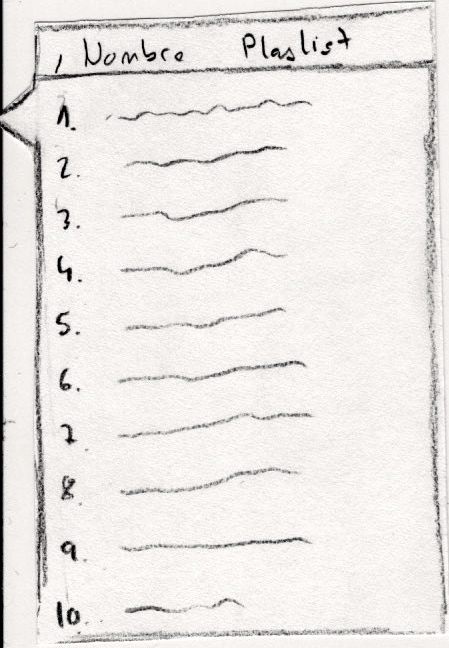 , Nombre Playlist
1.
2.
3.
4.
5.
6.
7
8.
9.
10.